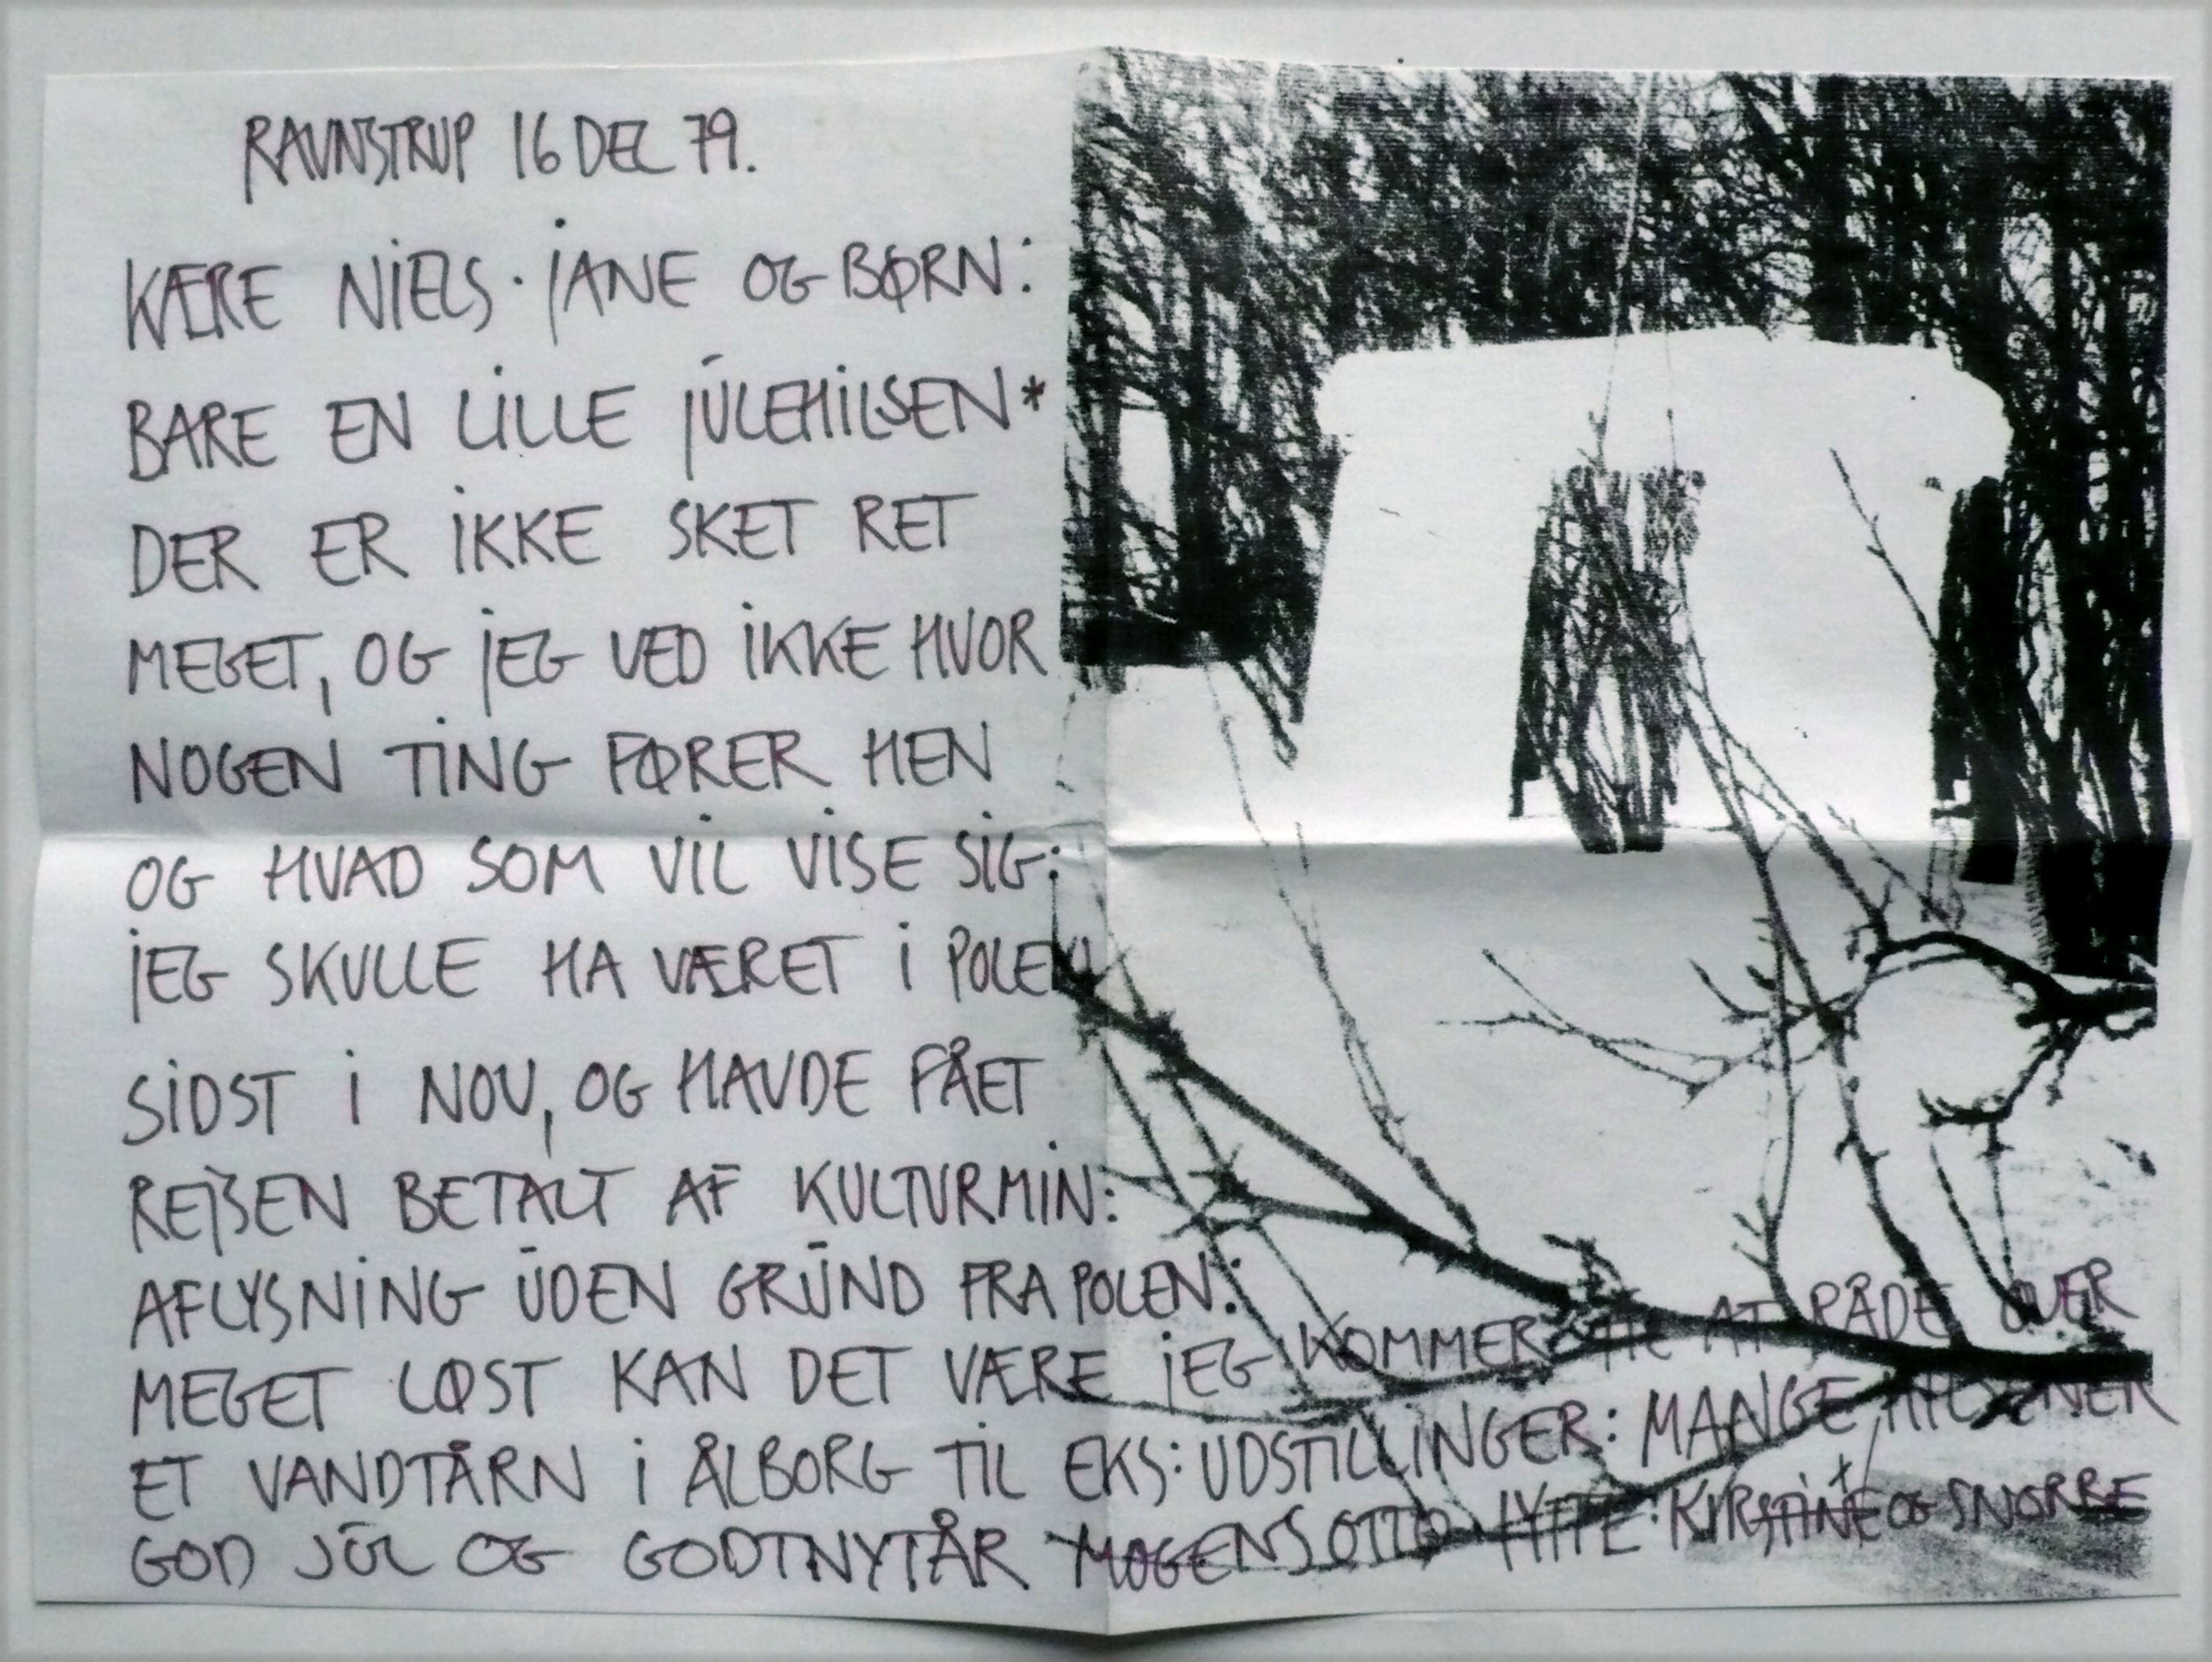 RAVNSTRUP 16 DEC 79.
KÆRE NIELS · JANE OG BØRN:
BARE EN LILLE JULEHILSEN*
DER ER IKKE SKET RET
MEGET, OG JEG VED IKKE HVOR
NOGEN TING FØRER HEN
OG HVAD SOM VIL VISE SIG:
JEG SKULLE HA VÆRET I POLEN
SIDST I NOV, OG HAVDE FÅET
REJSEN BETALT AF KULTURMIN:
AFLYSNING UDEN GRUND FRA POLEN:
MEGET LØST KAN DET VÆRE JEG KOMMER TIL AT RÅDE OVER
ET VANDTÅRN I ÅLBORG TIL EKS: UDSTILLINGER: MANGE HILSENER
GOD JUL OG GODTNYTÅR MOGENS OTTO HYTTE: KIRSTINE OG SNORRE